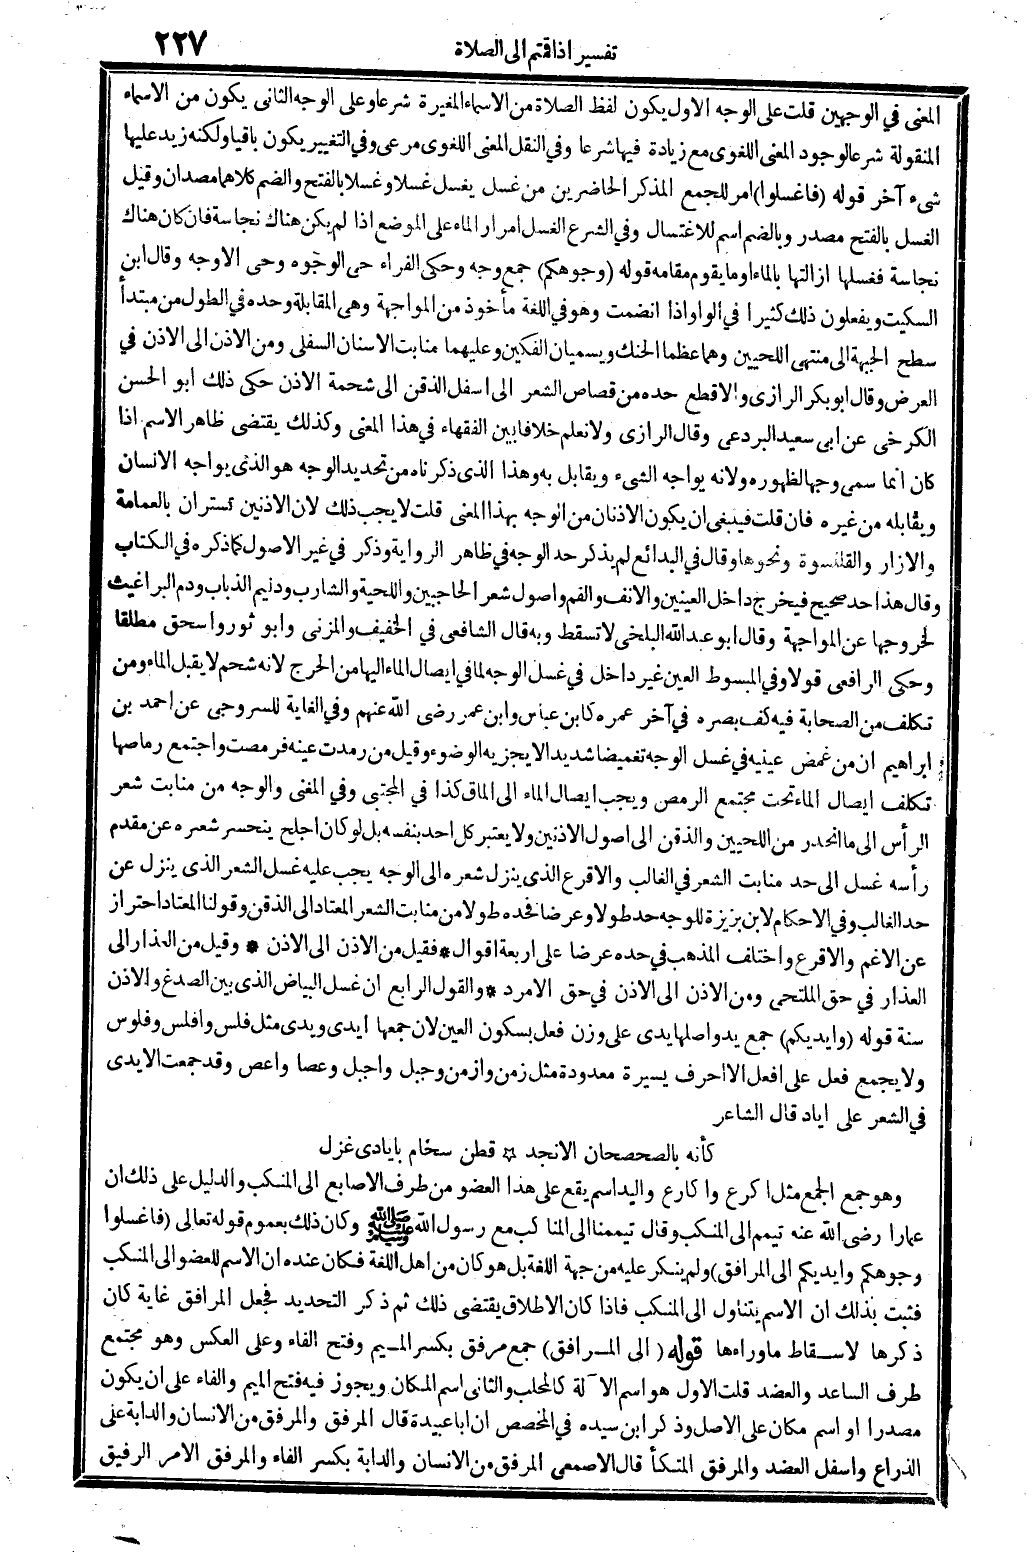 تفسير اذا قمتم الى الصلاة
٢٢٧
المعنى في الوجهين قلت على الوجه الاول يكون لفظ الصلاة من الاسماء المغيرة شرعا وعلى الوجه الثانى يكون من الاسماء
المنقولة شرعا لوجود المعنى اللغوى مع زيادة فيها شرعا وفي النقل المعنى اللغوى مرعى وفي التغيير يكون باقيا ولكنه زيد عليها
شىء آخر قوله (فاغسلوا) امر للجمع المذكر الحاضرين من غسل يغسل غسلا وغسلا بالفتح والضم كلاهما مصدران وقيل
الغسل بالفتح مصدر وبالضم اسم للاغتسال وفي الشرع الغسل امرار الماء على الموضع اذا لم يكن هناك نجاسة فان كان هناك
نجاسة فغسلها ازالتها بالماء او ما يقوم مقامه قوله (وجوهكم) جمع وجه وحكى الفراء حى الوجوه وحى الاوجه وقال ابن
السكيت ويفعلون ذلك كثيرا في الواو اذا انضمت وهو في اللغة مأخوذ من المواجهة وهى المقابلة وحده في الطول من مبتدأ
سطح الجبهة الى منتهى اللحيين وهما عظما الحنك ويسميان الفكين وعليهما منابت الاسنان السفلى ومن الاذن الى الاذن في
العرض وقال ابو بكر الرازى والاقطع حده من قصاص الشعر الى اسفل الذقن الى شحمة الاذن حكى ذلك ابو الحسن
الكرخى عن ابى سعيد البردعى وقال الرازى ولا نعلم خلافا بين الفقهاء في هذا المعنى وكذلك يقتضى ظاهر الاسم اذا
كان انما سمى وجها لظهوره ولانه يواجه الشىء ويقابل به وهذا الذى ذكرناه من تحديد الوجه هو الذى يواجه الانسان
ويقابله من غيره فان قلت فينبغى ان يكون الاذنان من الوجه بهذا المعنى قلت لا يجب ذلك لان الاذنين تستران بالعمامة
والازار والقلنسوة ونحوها وقال في البدائع لم يذكر حد الوجه في ظاهر الرواية وذكر في غير الاصول كما ذكره في الكتاب
وقال هذا حد صحيح فيخرج داخل العينين والانف والفم واصول شعر الحاجبين واللحية والشارب ودنيم الذباب ودم البراغيث
لخروجها عن المواجهة وقال ابو عبد الله البلخى لا تسقط وبه قال الشافعى في الخفيف والمزنى وابو ثور واسحق مطلقا
وحكى الرافعى قولا وفي المبسوط العين غير داخل في غسل الوجه لما في ايصال الماء اليها من الحرج لانه شحم لا يقبل الماء ومن
تكلف من الصحابة فيه كف بصره في آخر عمره كابن عباس وابن عمر رضى الله عنهم وفي الغاية للسروجى عن احمد بن
ابراهيم ان من غمض عينيه في غسل الوجه تغميضا شديدا لا يجزيه الوضوء وقيل من رمدت عينه فرمصت واجتمع رماصها
تكلف ايصال الماء تحت مجتمع الرمص ويجب ايصال الماء الى الماق كذا في المجتبى وفي المغنى والوجه من منابت شعر
الرأس الى ما انحدر من اللحيين والذقن الى اصول الاذنين ولا يعتبر كل احد بنفسه بل لو كان اجلح ينحسر شعره عن مقدم
رأسه غسل الى حد منابت الشعر في الغالب والاقرع الذى ينزل شعره الى الوجه يجب عليه غسل الشعر الذى ينزل عن
حد الغالب وفي الاحكام لابن بزيزة للوجه حد طولا وعرضا فحده طولا من منابت الشعر المعتاد الى الذقن وقولنا المعتاد احتراز
عن الاغم والاقرع واختلف المذهب في حده عرضا على اربعة اقوال * فقيل من الاذن الى الاذن * وقيل من العذار الى
العذار في حق الملتحى ومن الاذن الى الاذن في حق الامرد * والقول الرابع ان غسل البياض الذى بين الصدغ والاذن
سنة قوله (وايديكم) جمع يد واصلها يدى على وزن فعل بسكون العين لان جمعها ايدى ويدى مثل فلس وافلس وفلوس
ولا يجمع فعل على افعل الا احرف يسيرة معدودة مثل زمن وازمن وجبل واجبل وعصا واعص وقد جمعت الايدى
في الشعر على اياد قال الشاعر
كأنه بالصحصحان الانجد ☆ قطن سخام بايادى غزل
وهو جمع الجمع مثل اكرع واكارع واليد اسم يقع على هذا العضو من طرف الاصابع الى المنكب والدليل على ذلك ان
عمارا رضى الله عنه تيمم الى المنكب وقال تيممنا الى المناكب مع رسول الله ﷺ وكان ذلك بعموم قوله تعالى (فاغسلوا
وجوهكم وايديكم الى المرافق) ولم ينكر عليه من جهة اللغة بل هو كان من اهل اللغة فكان عنده ان الاسم للعضو الى المنكب
فثبت بذلك ان الاسم يتناول الى المنكب فاذا كان الاطلاق يقتضى ذلك ثم ذكر التحديد فجعل المرافق غاية كان
ذكرها لاسقاط ما وراءها قوله (الى المرافق) جمع مرفق بكسر الميم وفتح الفاء وعلى العكس وهو مجتمع
طرف الساعد والعضد قلت الاول هو اسم الآلة كالمحلب والثانى اسم المكان ويجوز فيه فتح الميم والفاء على ان يكون
مصدرا او اسم مكان على الاصل وذكر ابن سيده في المخصص ان ابا عبيدة قال المرفق والمرفق من الانسان والدابة على
الذراع واسفل العضد والمرفق المتكأ قال الاصمعى المرفق من الانسان والدابة بكسر الفاء والمرفق الامر الرفيق